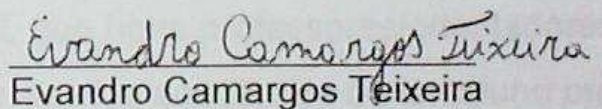 Evandro Camargos Teixeira
Evandro Camargos Teixeira